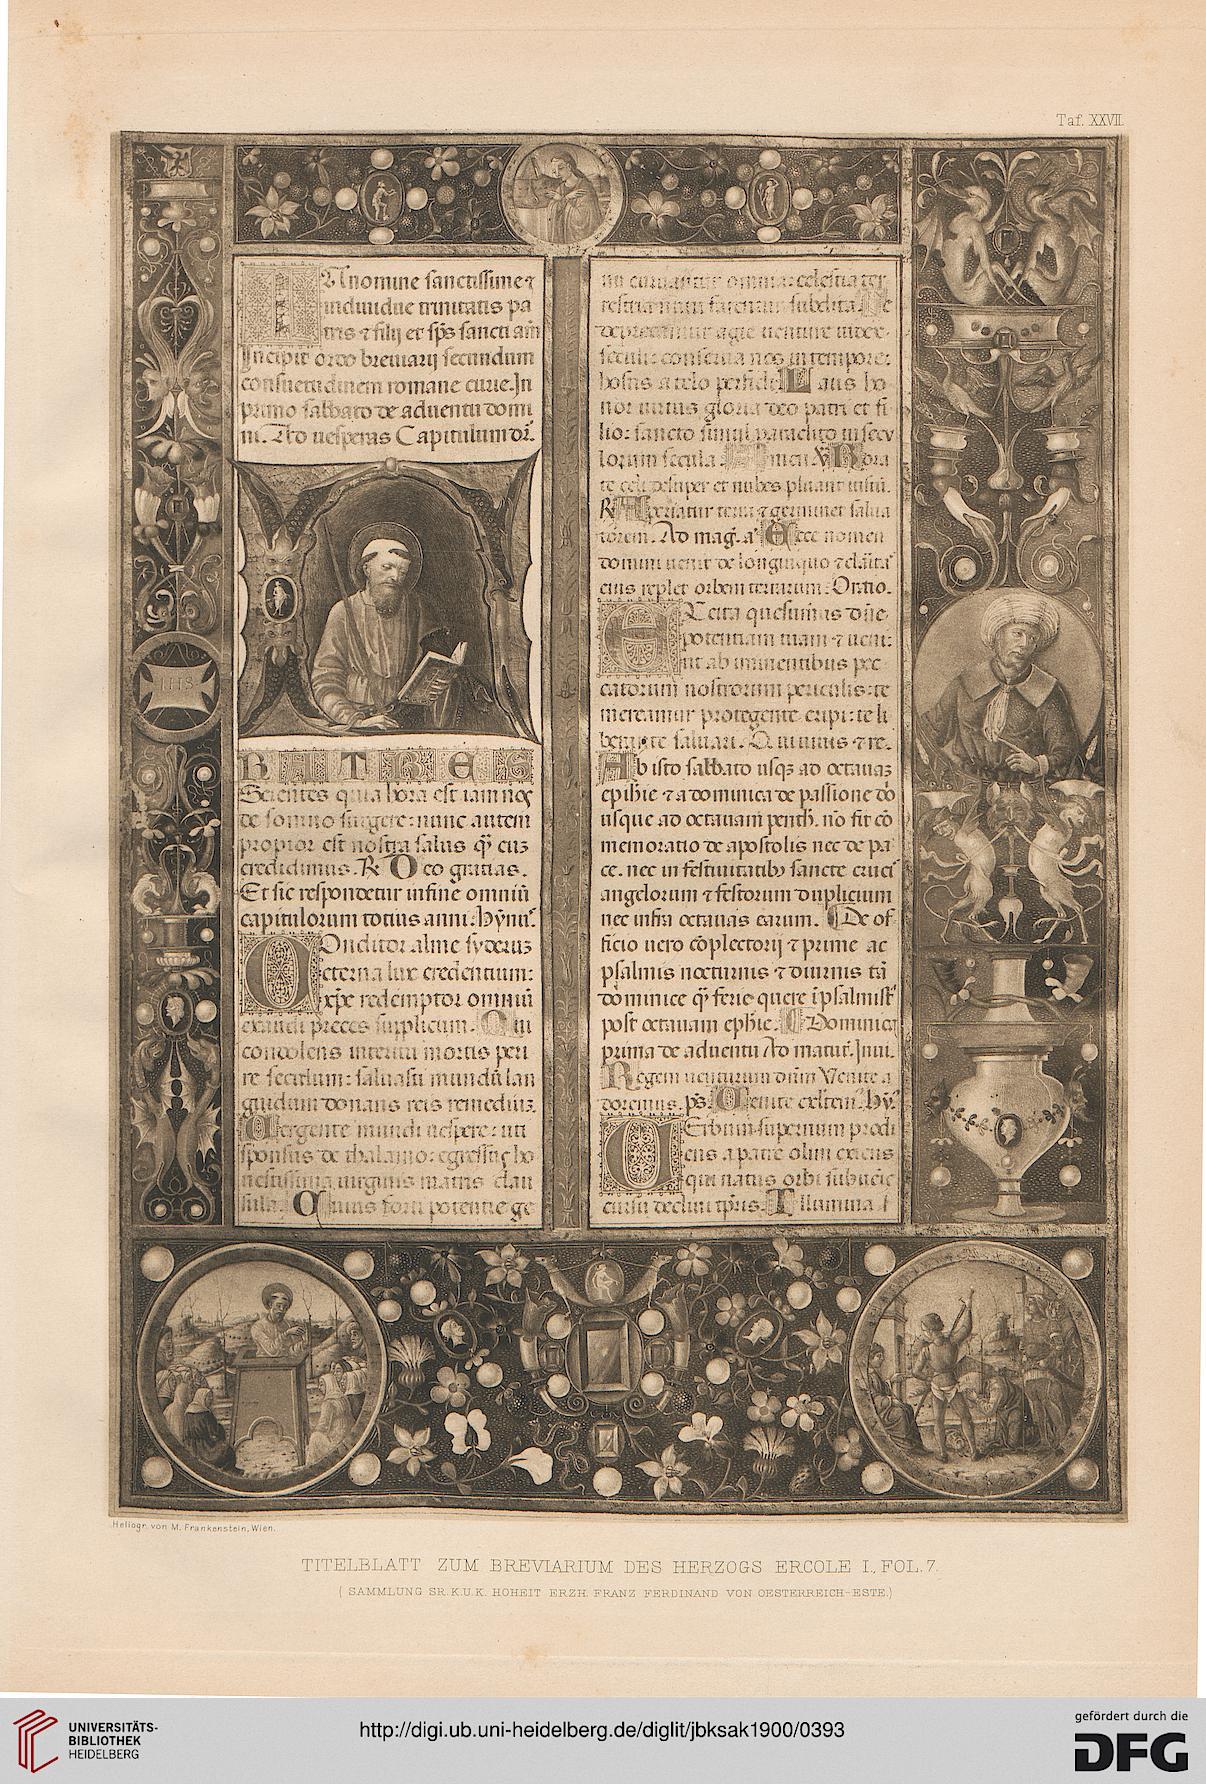 Taf. XXVII.
IN nomine sanctissime ⁊
indiuidue trinitatis pa
tris ⁊ filij et sp̄s sancti am̄
Incipit ordo breuiarij secundum
consuetudinem romane curie. In
primo sabbato de aduentu domi
ni. Ad uesperas Capitulum
F
RATRES
Scientes quia hora est iam nos
de somno surgere: nunc autem
propior est nostra salus qͣ cum
credidimus. R Deo gratias.
Et sic respondetur in fine omniū
capitulorum totius anni. hÿnuˢ
Conditor alme syderuꝫ
eterna lux credentium:
xp̄e redemptor omniū
exaudi preces supplicum. Qui
condolens interitu mortis peri
re seculum: saluasti mundū lan
guidum donans reis remediuꝫ.
Uergente mundi uespere: uti
sponsus de thalamo: egressus ho
nestissima uirginis matris clau
sula. Cuius forti potentie ge
nu curuantur omnia: celestia ter
restria nutu fatentur subdita. Te
deprecamur agie uenture iudex
seculi: conserua nos in tempore:
hostis a telo perfidi. Laus ho
nor uirtus gloria deo patri et fi
lio: sancto simul paraclito in secu
lorum secula. Amen. V Rora
te celi desuper et nubes pluant iustū.
R Aperiatur terra ⁊ germinet salua
torem. Ad mag. a Ecce nomen
domini uenit de longinquo ⁊ claritas
eius replet orbem terrarum. Oratio.
Excita quesumus dn̄e
potentiam tuam ⁊ ueni:
ut ab iminentibus pec
catorum nostrorum periculis: te
mereamur protegente eripi: te li
berante saluari. Q uiuis ⁊ re.
Ab isto sabbato usqꝫ ad octauaꝫ
ephie ⁊ a dominica de passione
usque ad octauam penth. nō fit cō
memoratio de apostolis nec de pa
ce. nec in festiuitatibꝫ sancte cruciˢ
angelorum ⁊ festorum duplicium
nec infra octauas earum. De of
ficio uero cōplectorij ⁊ prime ac
psalmis nocturnis ⁊ diurnis tā
dominice qͣ ferie quere ī psalmisť
post octauam ephie. Dominica
prima de aduentu Ad matuť. Inui.
Regem uenturum dn̄m Venite a
doremus. ps. Uenite exltem. hÿ.
Uerbum supernum prodi
ens a patre olim exiens
qui natus orbi subuenis
cursu decliui tp̄ris. Illumina
IHS
Heliogr. von M. Frankenstein, Wien.
TITELBLATT ZUM BREVIARIUM DES HERZOGS ERCOLE I., FOL. 7.
( SAMMLUNG SR. K. U. K. HOHEIT ERZH. FRANZ FERDINAND VON OESTERREICH-ESTE.)
UNIVERSITÄTS-
BIBLIOTHEK
HEIDELBERG
http://digi.ub.uni-heidelberg.de/diglit/jbksak1900/0393
gefördert durch die
DFG